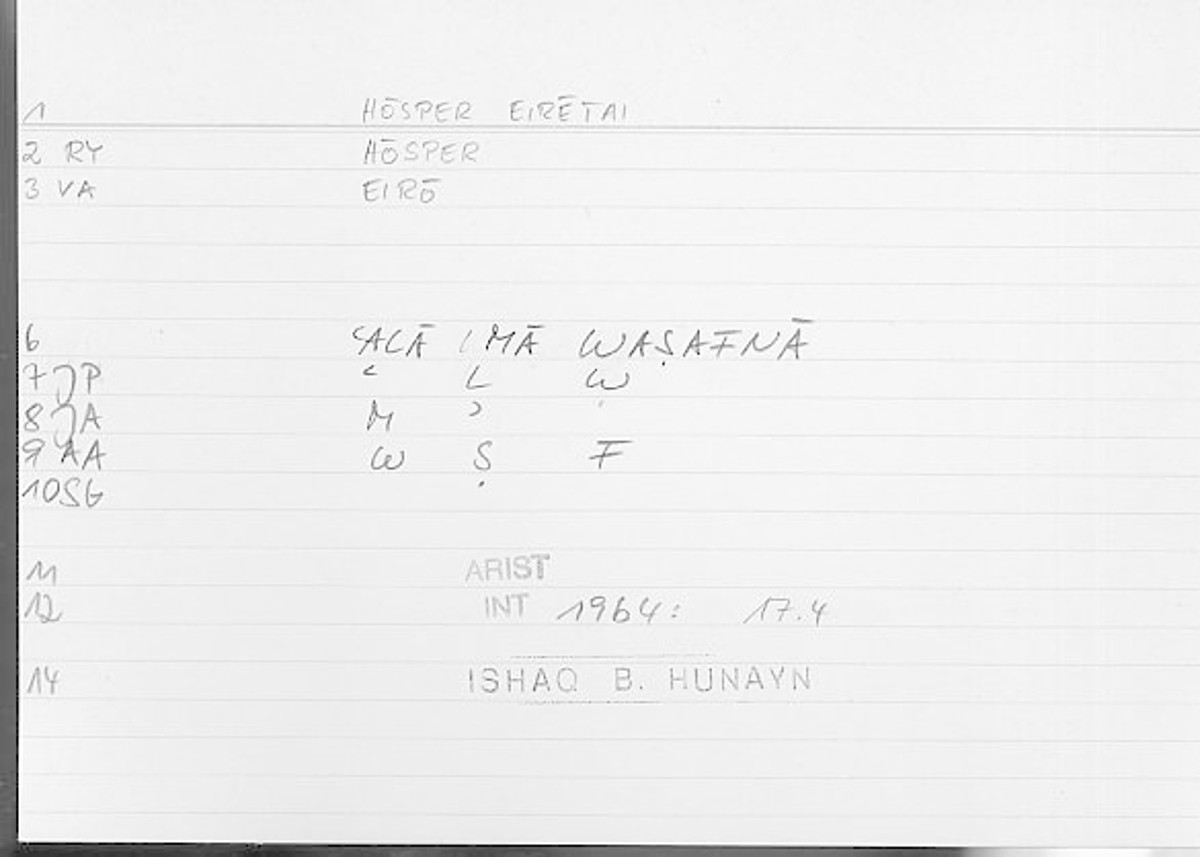 1 HŌSPER EIRĒTAI
2 RY HŌSPER
3 VA EIRŌ
6 ʿALĀ MĀ WAṢAFNĀ
7 JP ʿ L W
8 JA M ʾ
9 AA W Ṣ F
10 SG
11 ARIST
12 INT 1964: 17.4
14 ISHAQ B. HUNAYN